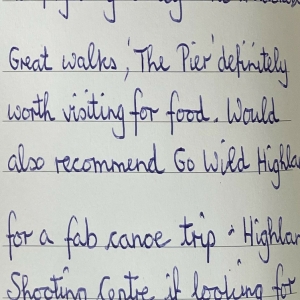 Great walks, 'The Pier' definitely
worth visiting for food. Would
also recommend Go Wild Highla
for a fab canoe trip & Highlan
Shooting Centre if looking for